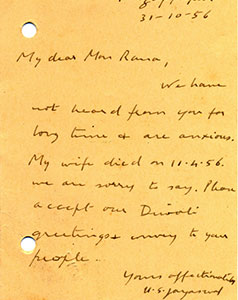 31-10-56
My dear Mon Rana,
We have
not heard from you for
long time & are anxious.
My wife died on 11.4.56.
we are sorry to say. Please
accept our Diwali
greetings & convey to your
people.
Yours affectionately
U.S. Jayaswal